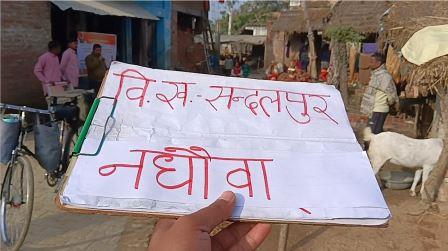 वि.स.- सन्दलपुर
नधौवा